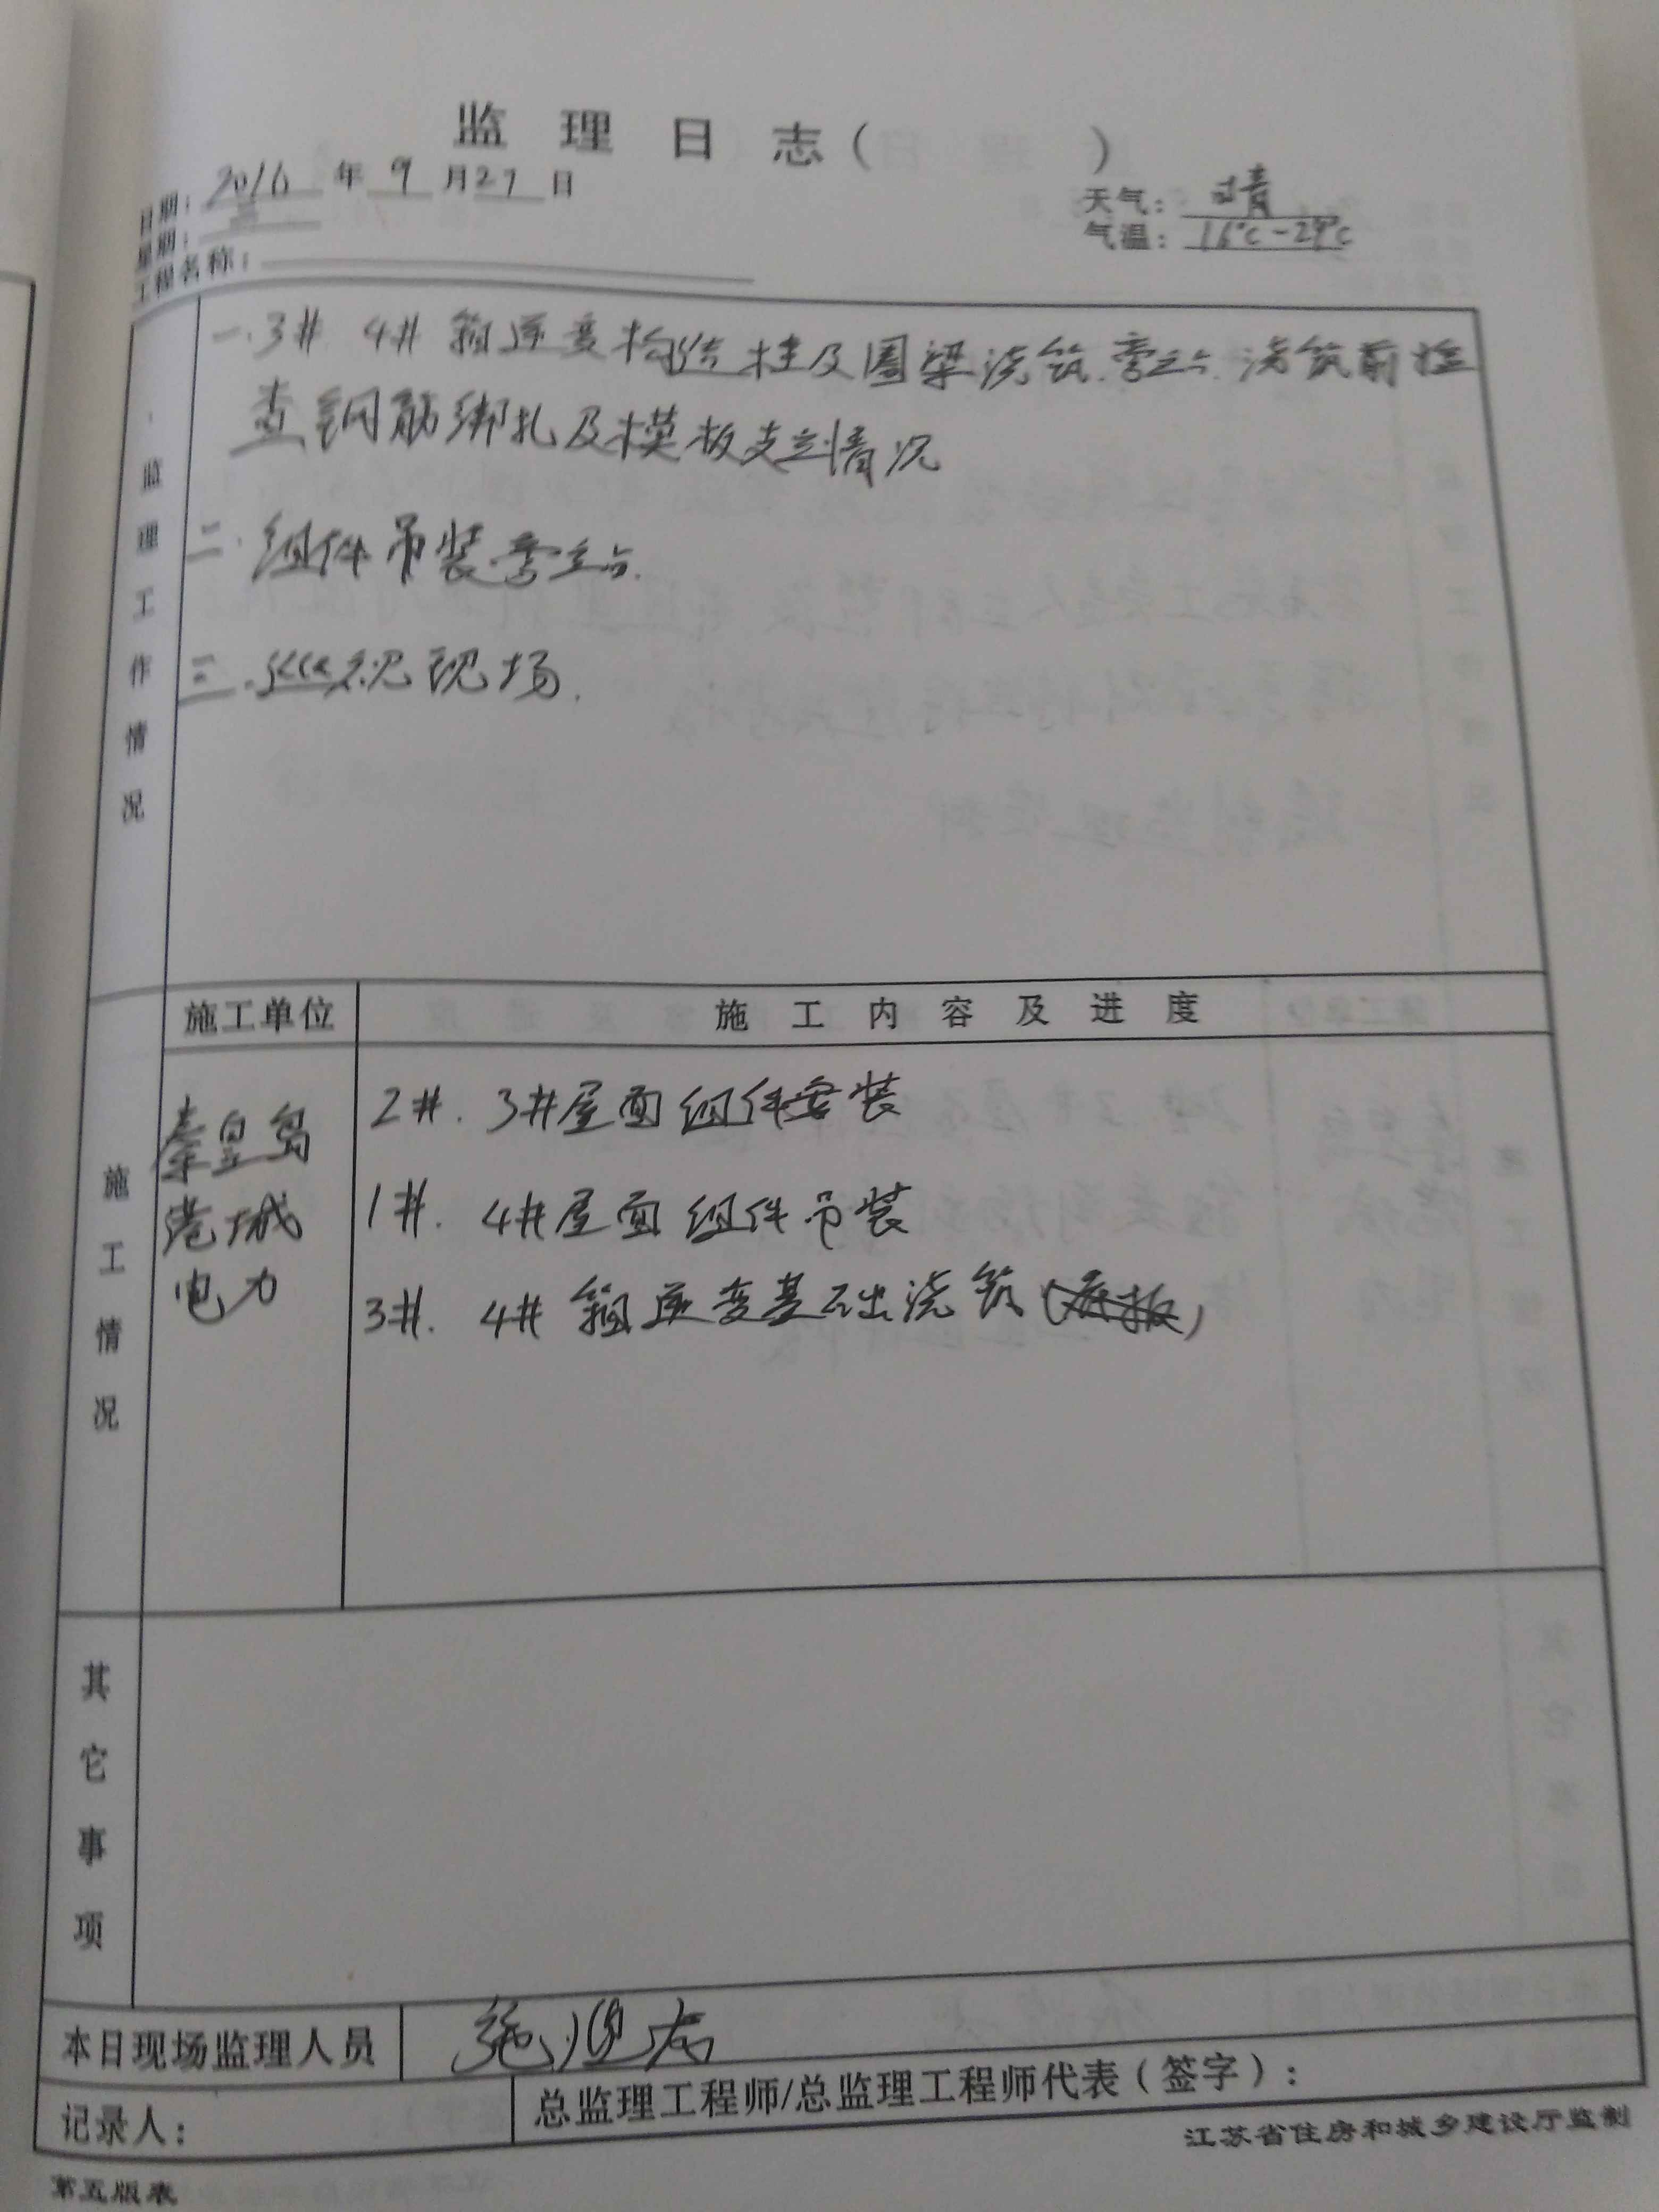 监理日志（ ）
日期：2016年9月27日
天气：晴
星期：二
气温：16℃-29℃
工程名称：
监理工作情况
一.3#.4#箱逆变构造柱及圈梁浇筑.旁站.浇筑前检
查钢筋绑扎及模板支立情况
二.组件吊装旁站.
三.巡视现场.
施工单位 施工内容及进度
施工情况
秦皇岛
港城
电力
2#.3#屋面组件安装
1#.4#屋面组件吊装
3#.4#箱逆变基础浇筑（底板）
其它事项
本日现场监理人员 施
记录人：
总监理工程师/总监理工程师代表（签字）：
江苏省住房和城乡建设厅监制
第五版表